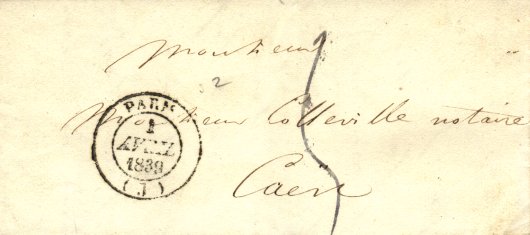 Monsieur
2
Monsieur Colleville notaire
Caen
PARIS
1
AVRIL
1839
(J)